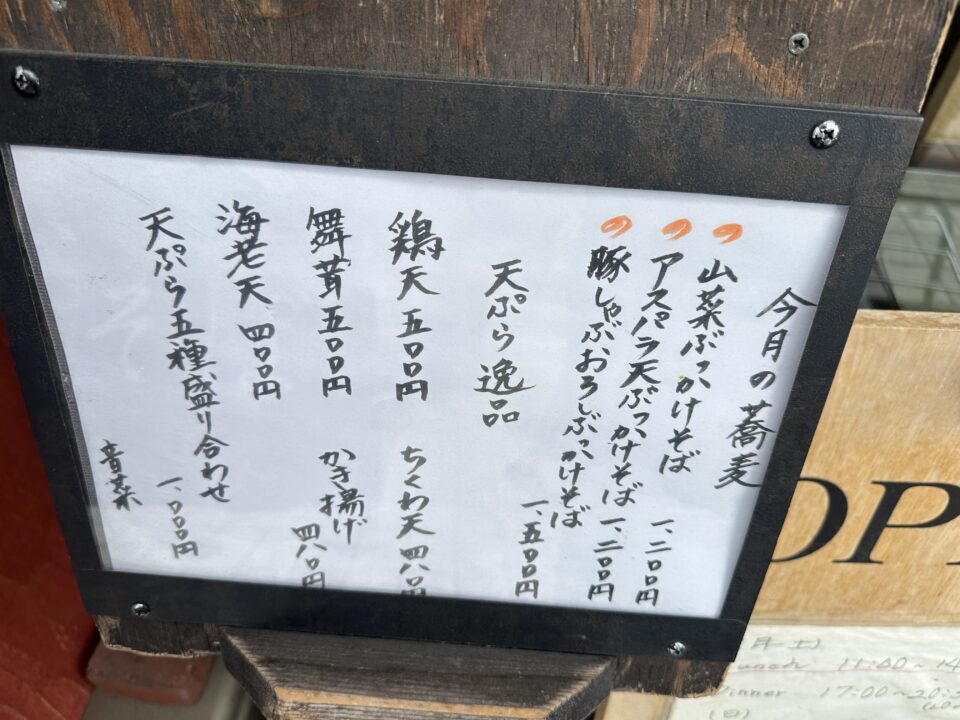 今月の蕎麦
の 山菜ぶっかけそば 一、二〇〇円
の アスパラ天ぶっかけそば 一、二〇〇円
の 豚しゃぶおろしぶっかけそば 一、五〇〇円
天ぷら逸品
鶏天 五〇〇円 ちくわ天 四八〇円
舞茸 五〇〇円 かき揚げ 四八〇円
海老天 四〇〇円
天ぷら五種盛り合わせ 一、〇〇〇円
音菜
OP
Lunch 11:00~14
Dinner 17:00~20:
(日)